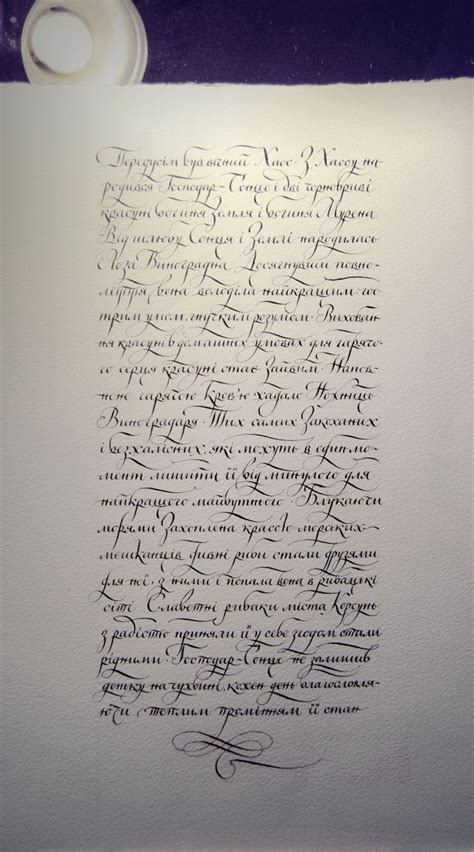 Передусім був вічний Хаос. З Хаосу на-
родився Господар-Сонце і дві чорневриві
красуні богиня Земля і богиня Мурена
Від шлюбу Сонця і Землі народилась
Лоза Виноградна. Досягнувши повно-
ліття, вона володіла найкращим гос-
трим умом, гнучким розумом. Вихован-
ня красуні в домашніх умовах для гарячо-
го серця красуні стає Зайвим. Напов-
нене гарячою Кров'ю
Виноградаря. Тих самих Закоханих
і які можуть в один мо-
мент лишити її від минулого для
найкращого майбутнього. Блукаючи
морями Захоплена красою морских
мешканців. Дивні риби стали друзями
для неї, з ними і попала вона в рибацькі
сіті. Славетні рибаки міста Корсунь
з радістю приняли її у себе згодом стали
рідними. Господар-Сонце не залишив
дочку на чужбині, кожен день благословля-
ючи теплим промінням її стан